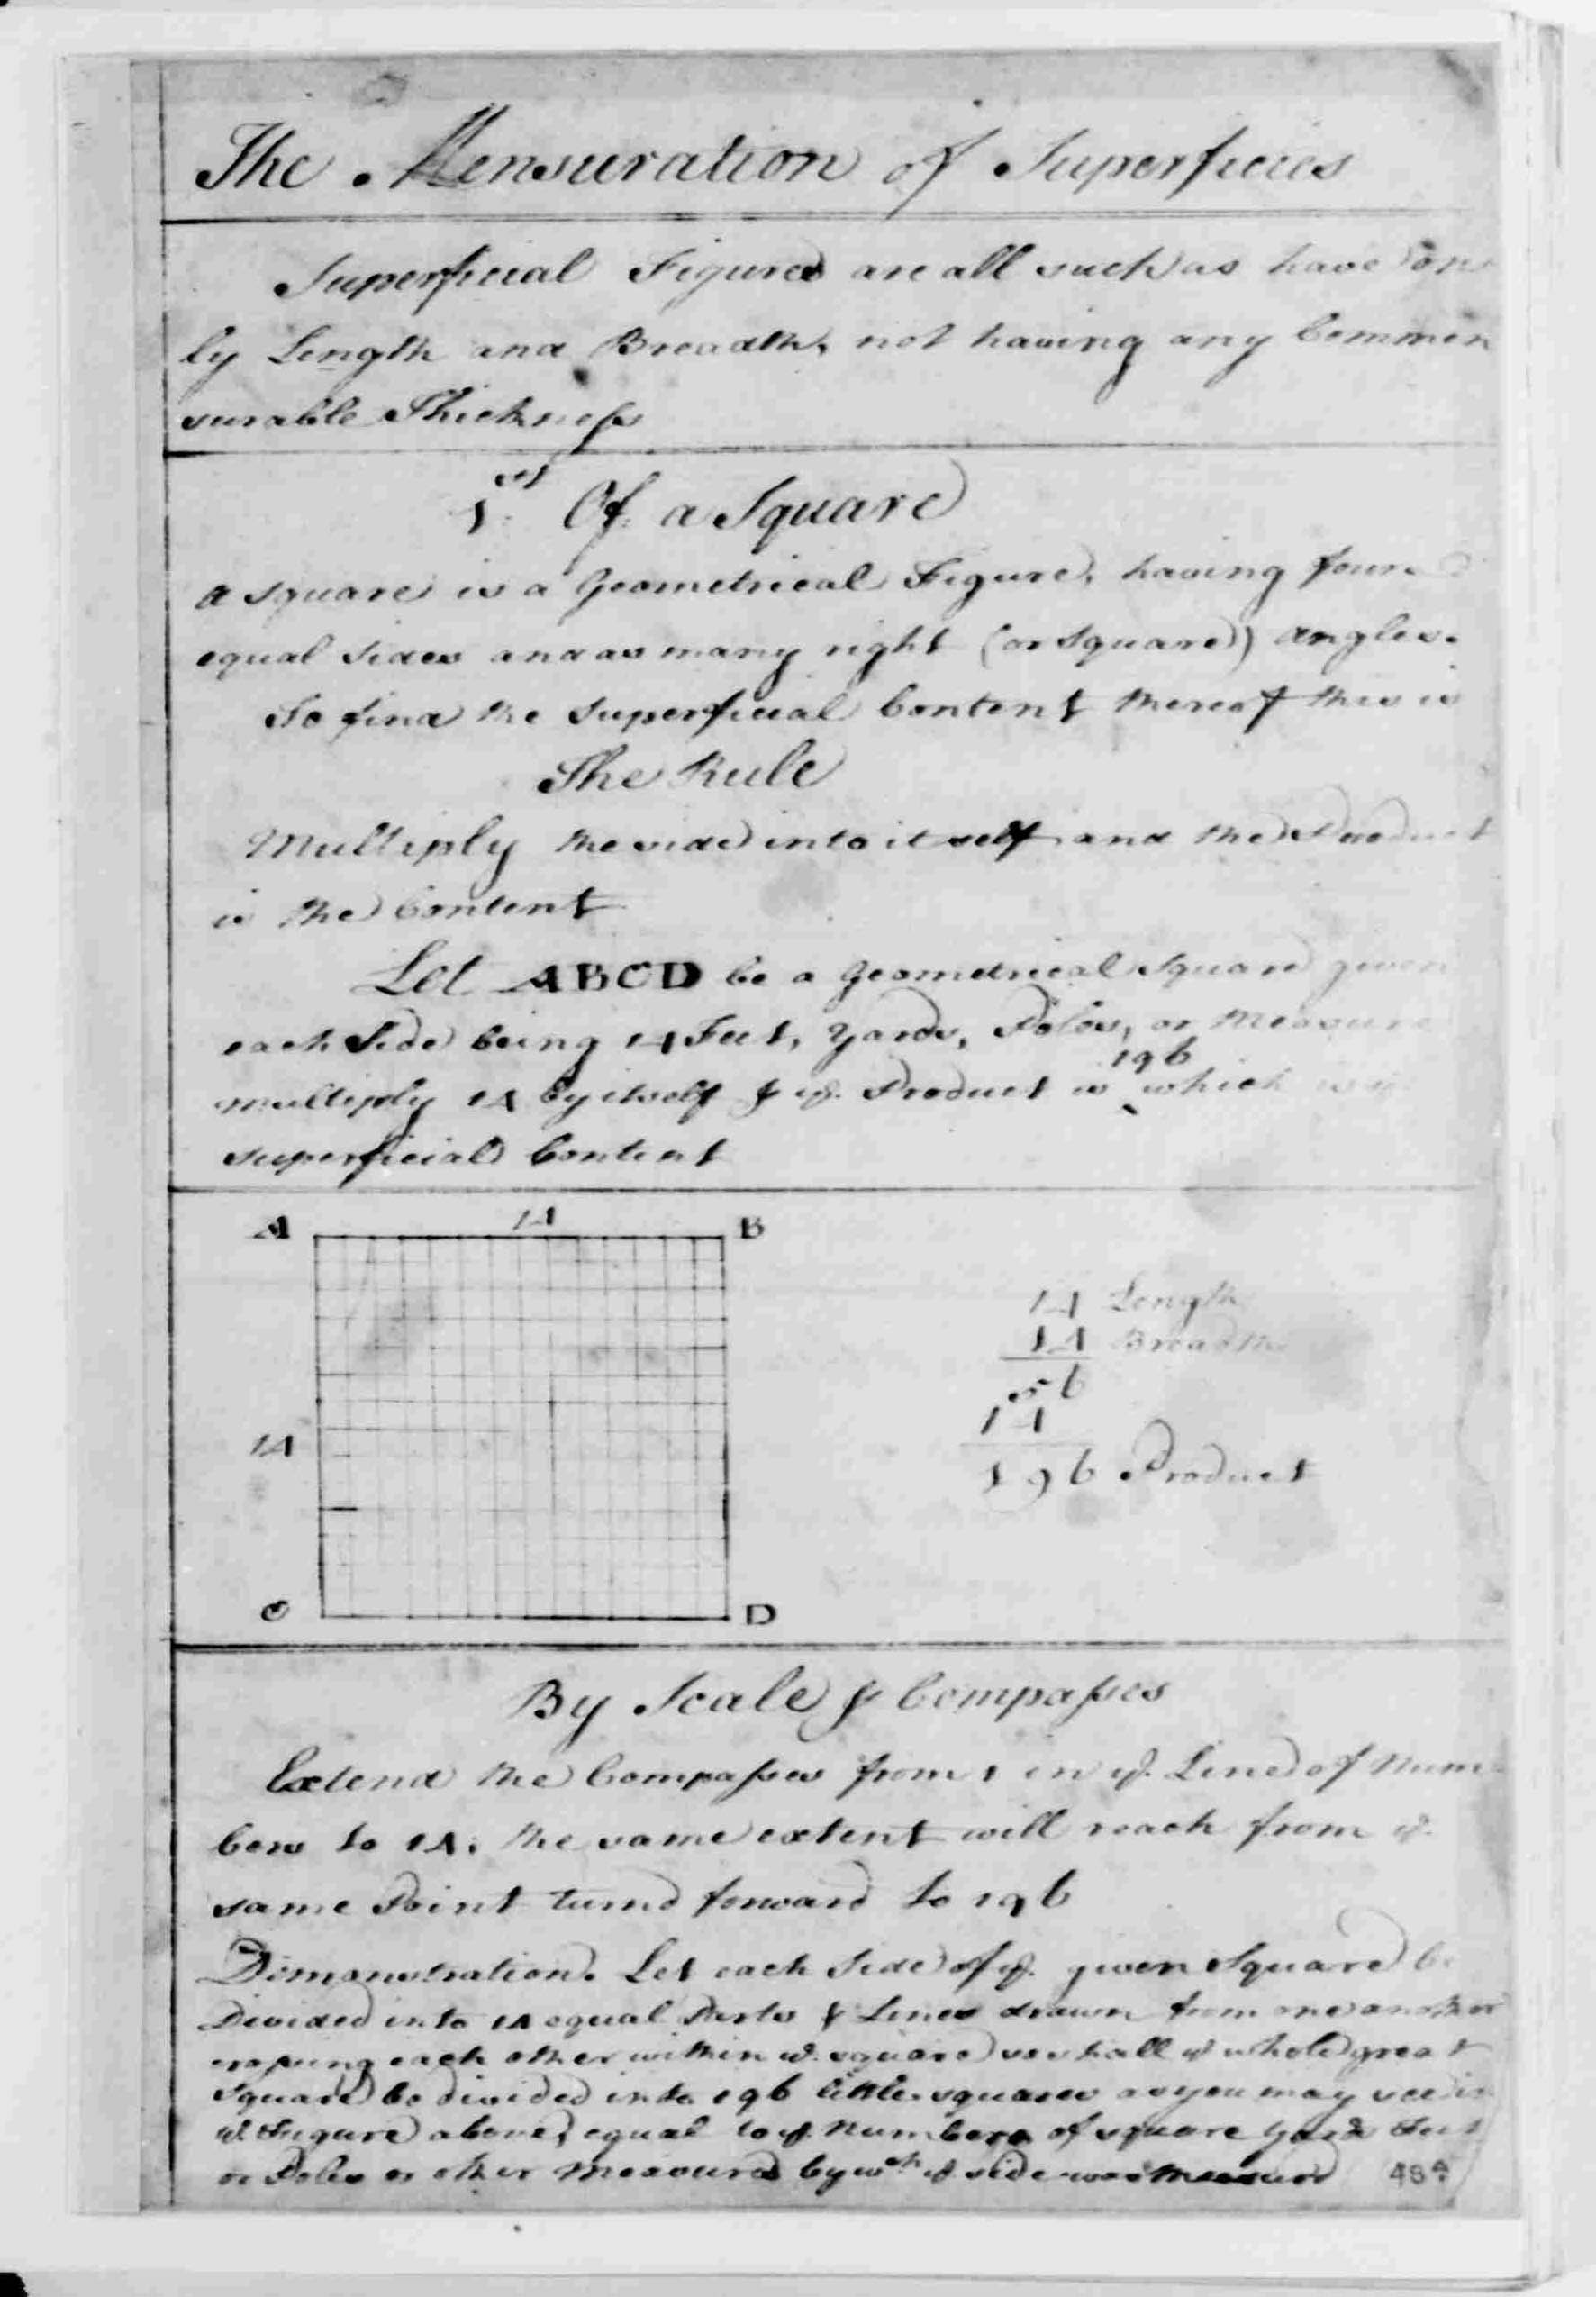 The Mensuration of Superficies
Superficial Figures are all such as have on
ly Length and Breadth, not having any Commen
surable Thickness
1st Of a Square
A square is a Geometrical Figure, having four
equal sides and as many right (or Square) Angles.
To find the superficial Content thereof this is
The Rule
Multiply the side into it self and the Product
is the Content
Let ABCD be a Geometrical Square given
each Side being 14 Feet, Yards, Poles, or Measure
196
multiply 14 by itself & ye. Product is ‸ which is
superficial Content
A 14 B
14 Length
14 Breadth
56
14
14
196 Product
C D
By Scale & Compasses
Extend the Compasses from 1 in ye. Line of Num
bers to 14, the same extent will reach from ye.
same Point turnd forward to 196
Dimonstration. Let each Side of ye. given Square be
Divided into 14 equal Parts & Lines drawn from one another
crossing each other within ye. square so shall ye whole great
Square be divided into 196 little squares as you may see in
ye. Figure above, equal to ye. Numbers of square Yards Feet
or Poles or other Measures by wch ye side was Measurd